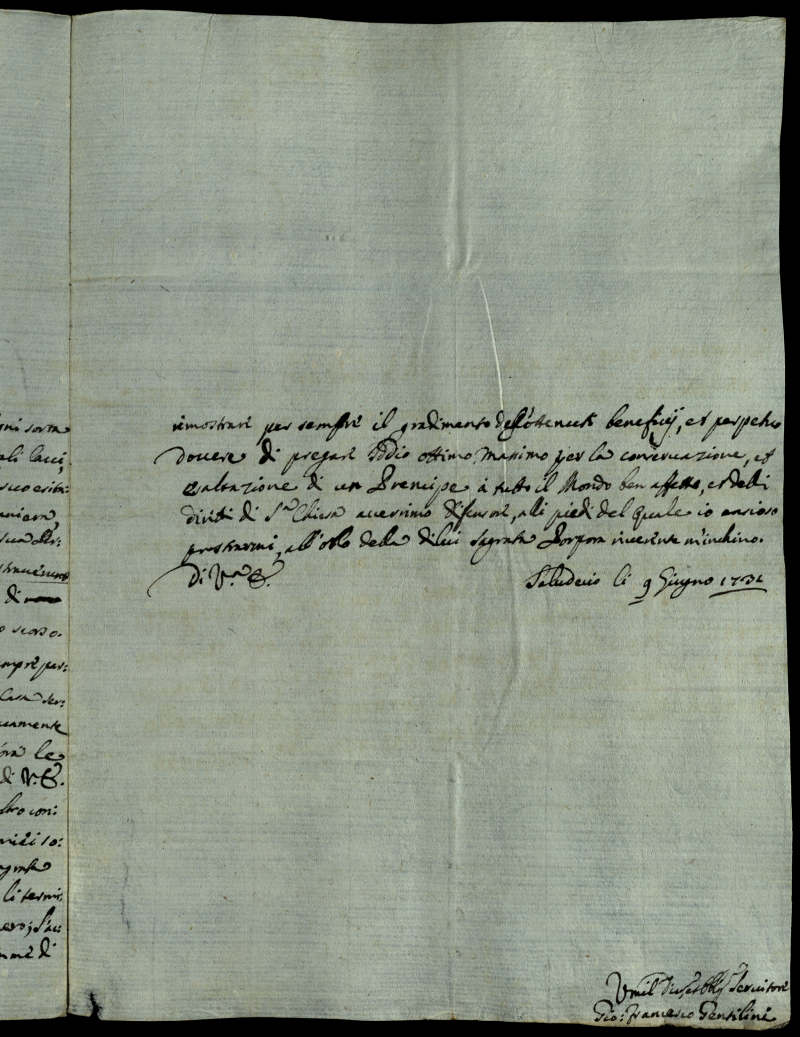 gni sorta
ali lacci,
aniera,
di
o scorso.
mpre per:
Casa ser:
camente
ora le
di V. E.
ltro con:
grata
li termi:
mme di
rimostrare per sempre il gradimento dell'ottenuti beneficij, et perpetuo
dovere di pregare Iddio ottimo, Massimo per la conservazione, et
esaltazione di un Prencipe à tutto il Mondo ben affetto, et delli
diritti di S.ta Chiesa acerrimo difensore, alli piedi del quale io ansioso
prostrarmi, all'orlo della di lui sagrata Porpora riverente m'inchino.
Di V.ra E.
Saludecio li 9 Giugno 1731
Umil.mo Servitore
Gio: Francesco Gentilini